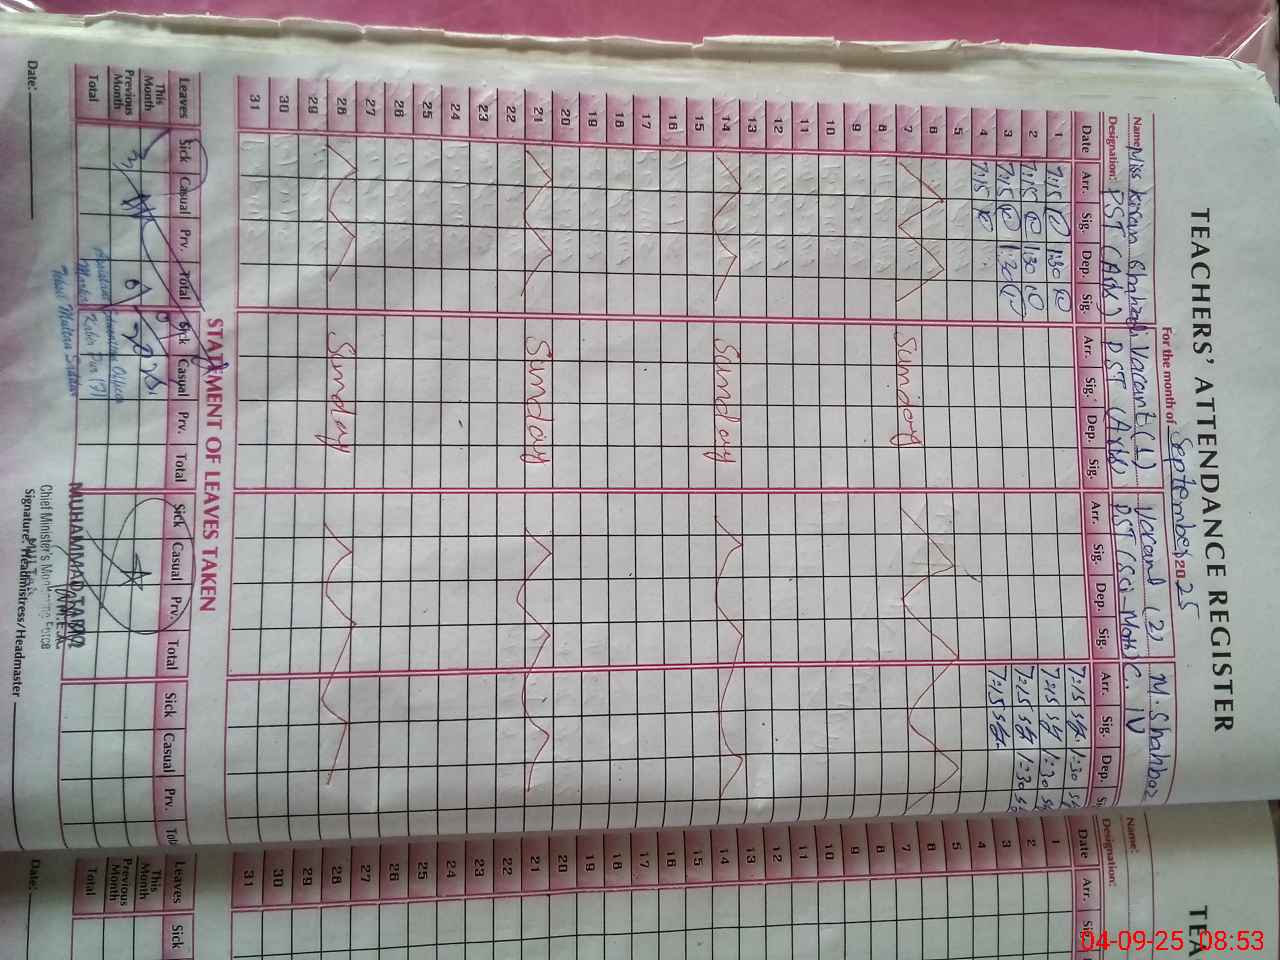 TEACHERS' ATTENDANCE REGISTER
For the month of September 2025
Name: Miss Kiran Shahzadi Vacant (1) Vacant (2) M. Shahbaz
Designation: PST (Arts) PST (Arts) PST (Sci Math) C. IV
Date Arr. Sig. Dep. Sig. Arr. Sig. Dep. Sig. Arr. Sig. Dep. Sig. Arr. Sig. Dep.
1 7:15 1:30 7:15 1:30
2 7:15 1:30 7:15 1:30
3 7:15 1:30 7:15 1:30
4 7:15 7:15
5
6
7 Sunday
8
9
10
11
12
13
14 Sunday
15
16
17
18
19
20
21 Sunday
22
23
24
25
26
27
28 Sunday
29
30
31
STATEMENT OF LEAVES TAKEN
Leaves Sick Casual Prv. Total Sick Casual Prv. Total Sick Casual Prv. Total Sick Casual Prv.
This Month
Previous Month
Total
Assistant Education Officer
Markaz Kabir Pur (7)
MUHAMMAD TARIQ
Chief Minister's Monitoring Force
Date:
Signature: Headmistress/Headmaster
TEA
Name:
Designation:
Date Arr.
1
2
3
4
5
6
7
8
9
10
11
12
13
14
15
16
17
18
19
20
21
22
23
24
25
26
27
28
29
30
31
Leaves Sick
This Month
Previous Month
Total
Date:
04-09-25 08:53